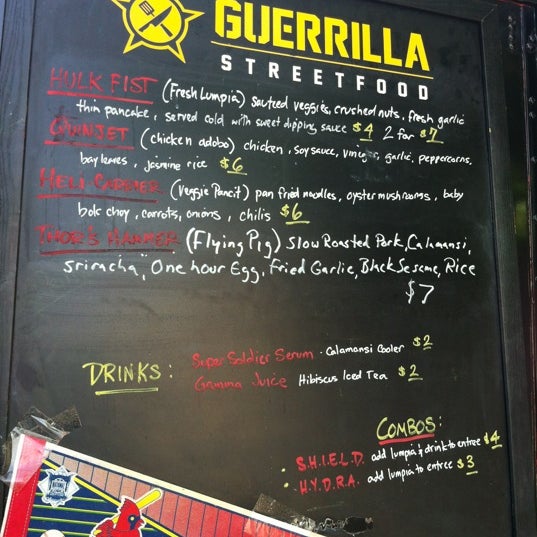 GUERRILLA
STREETFOOD
HULK FIST (Fresh Lumpia) sauteed veggies, crushed nuts, fresh garlic
thin pancake, served cold with sweet dipping sauce $4 2 for $7
QUINJET (chicken adobo) chicken, soy sauce, vinegar, garlic, peppercorns,
bay leaves, jasmine rice $6
HELI-CARRIER (Veggie Pancit) pan fried noodles, oyster mushrooms, baby
bok choy, carrots, onions, chilis $6
THOR'S HAMMER (Flying Pig) Slow Roasted Pork, Calamansi,
sriracha, One hour Egg, Fried Garlic, Black Sesame, Rice
$7
DRINKS: Super Soldier Serum · Calamansi Cooler $2
Gamma Juice Hibiscus Iced Tea $2
COMBOS:
· S.H.I.E.L.D. add lumpia & drink to entree $4
· H.Y.D.R.A. add lumpia to entree $3